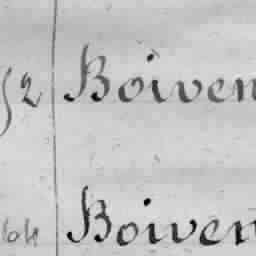 52 Boiven
Boiven